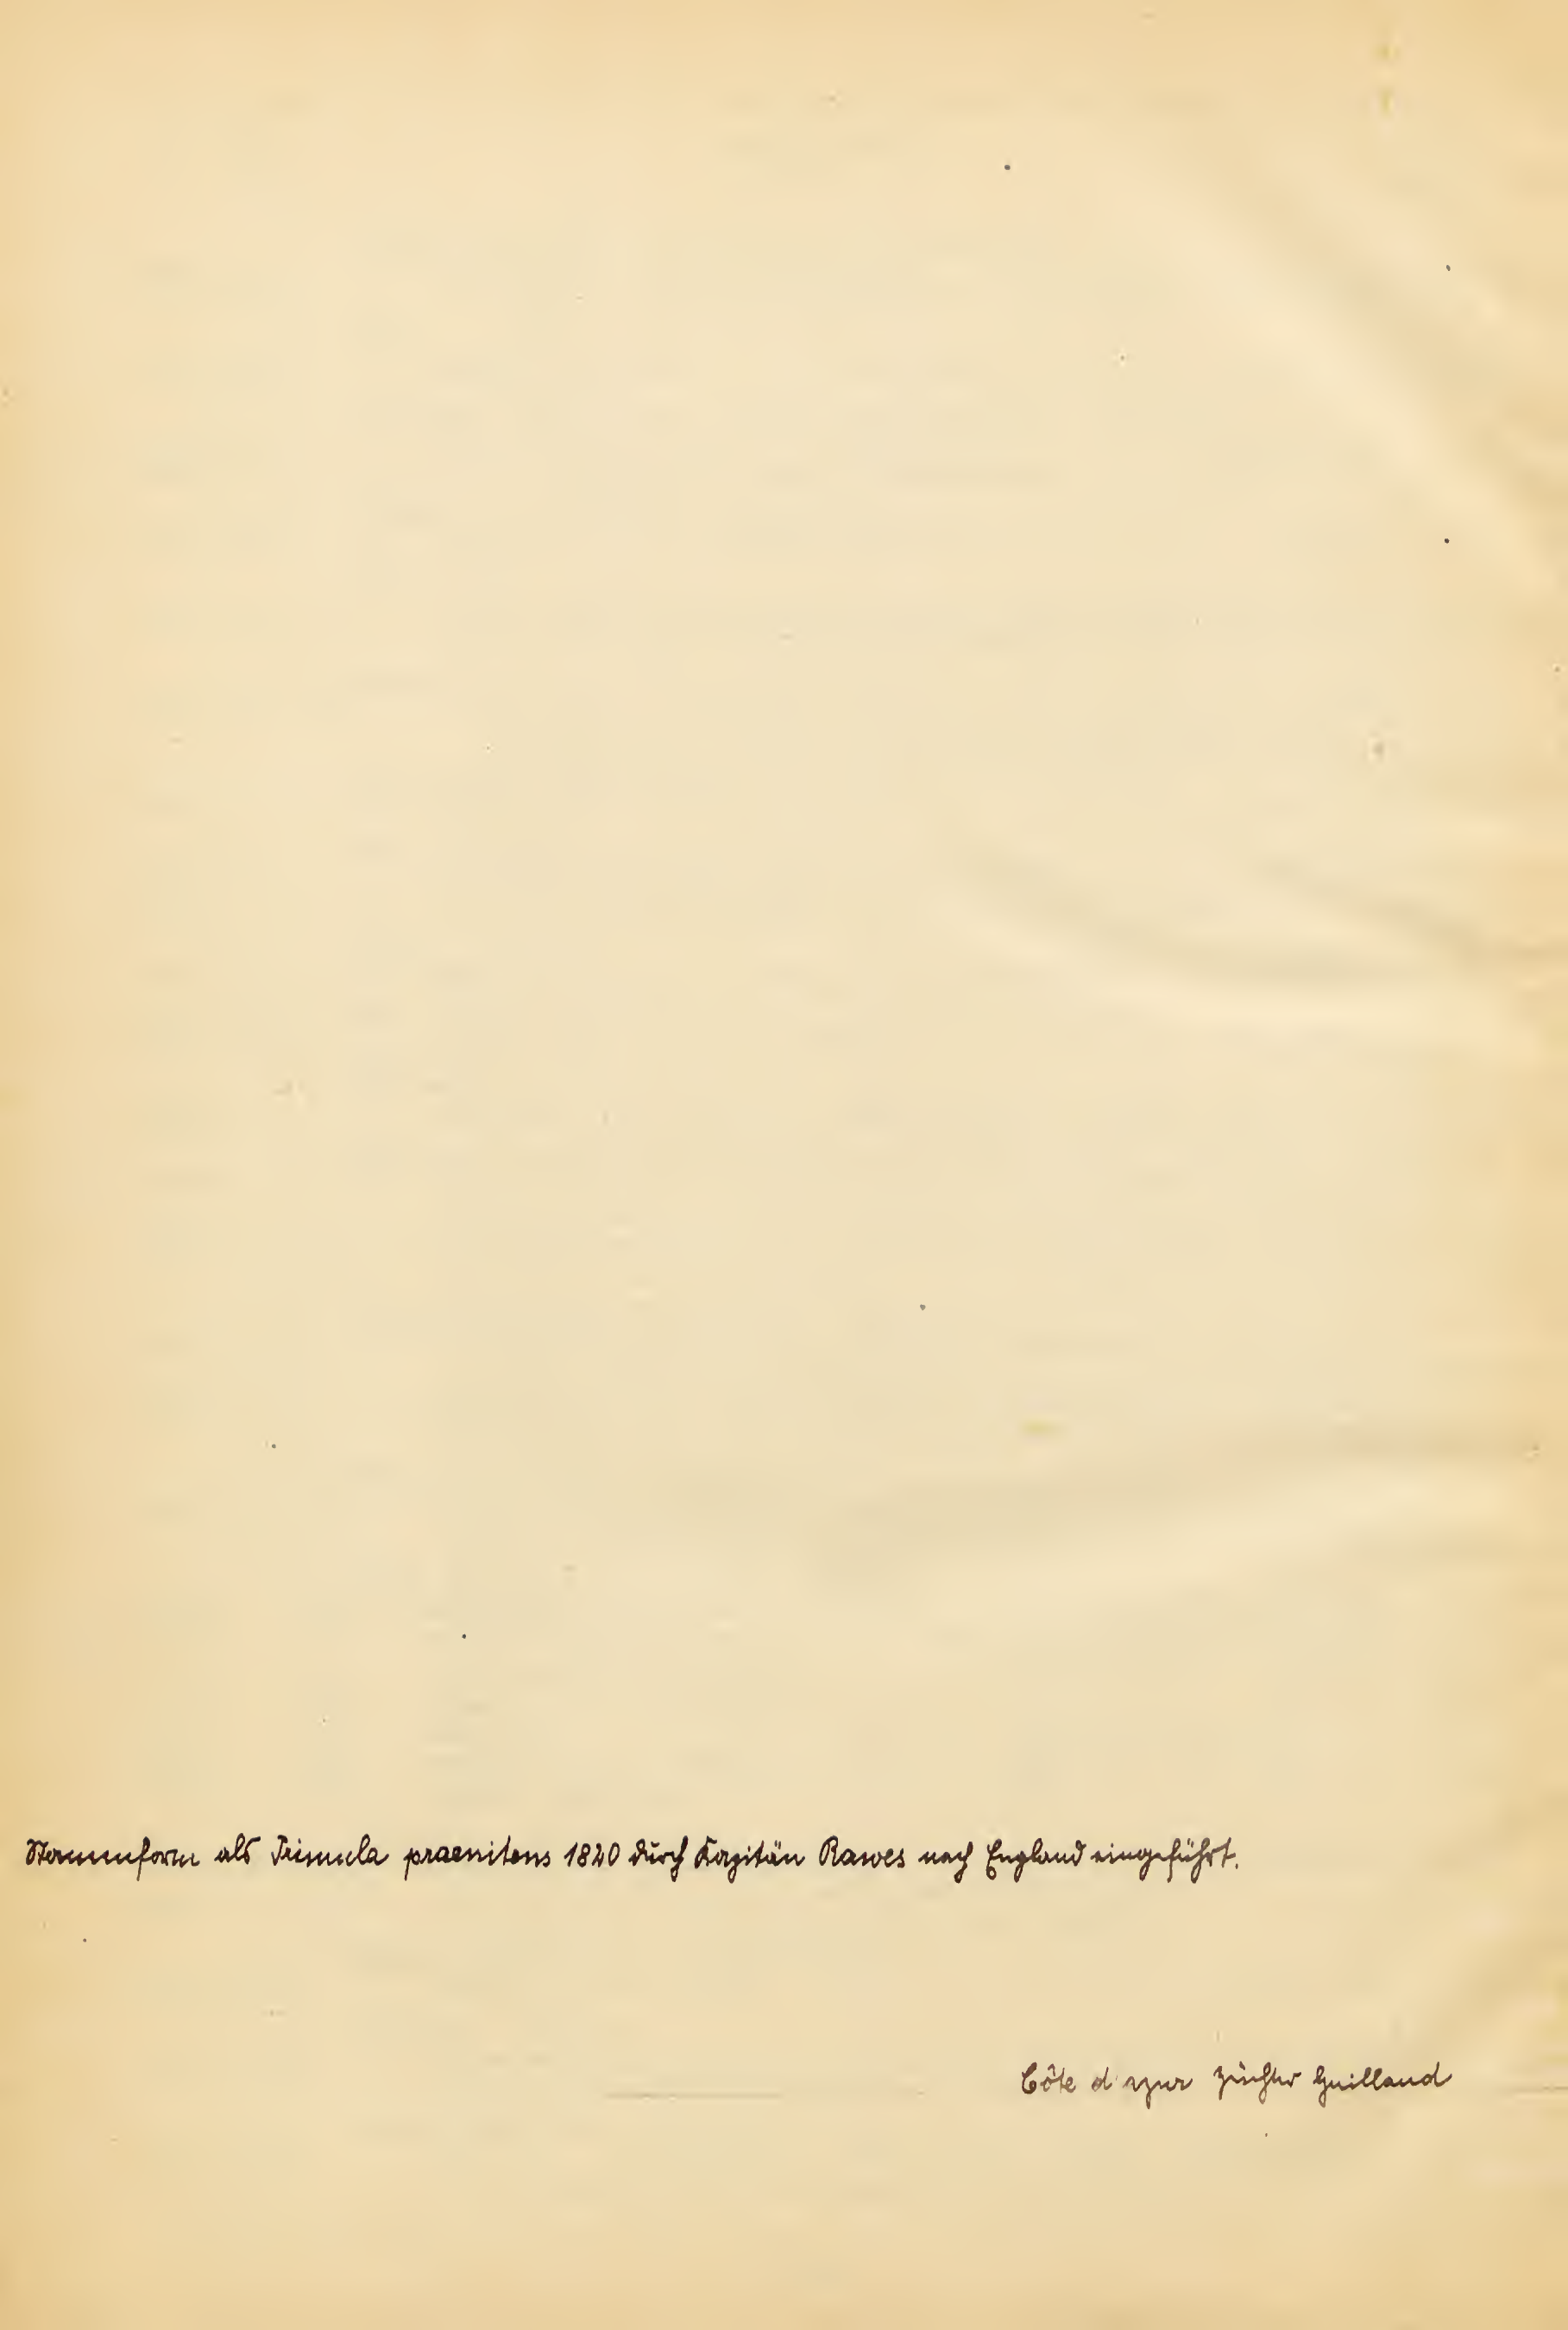 Stammform als Primula praenitens 1820 durch Kapitän Rawes nach England eingeführt.
Côte d'azur Züchter Guilland